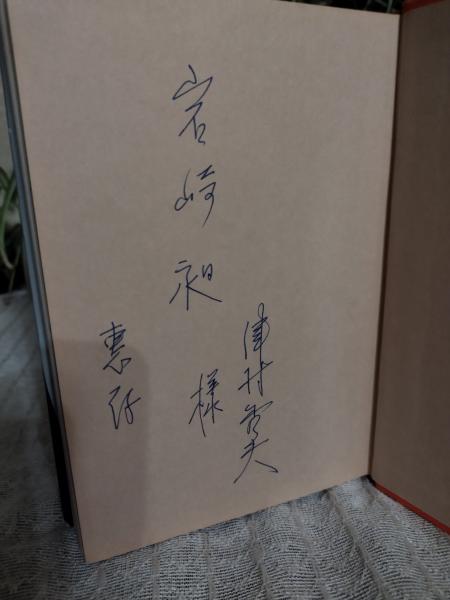 津村秀夫
岩崎昶様
惠存